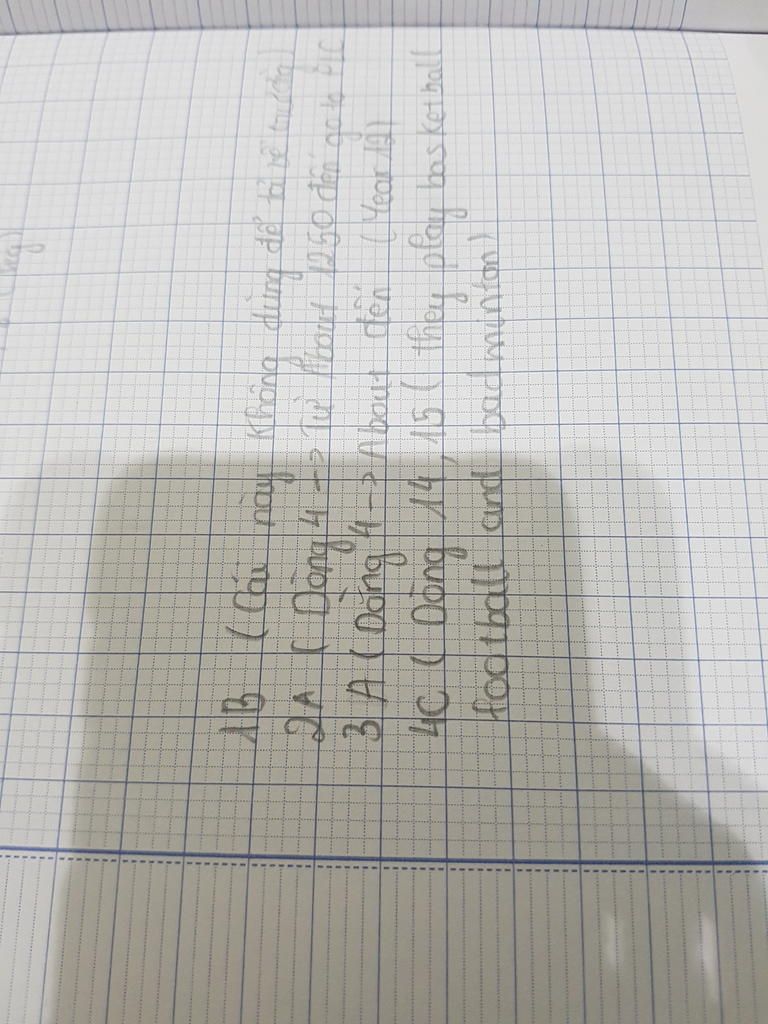 1B (Cái này không dùng để tả về trường)
2A (Dòng 4 --> Từ About 1250 đến go to PLC
3 A (Dòng 4 --> About đến (Year 12)
4C ( Dòng 14, 15 ( they play basketball
football and badminton)